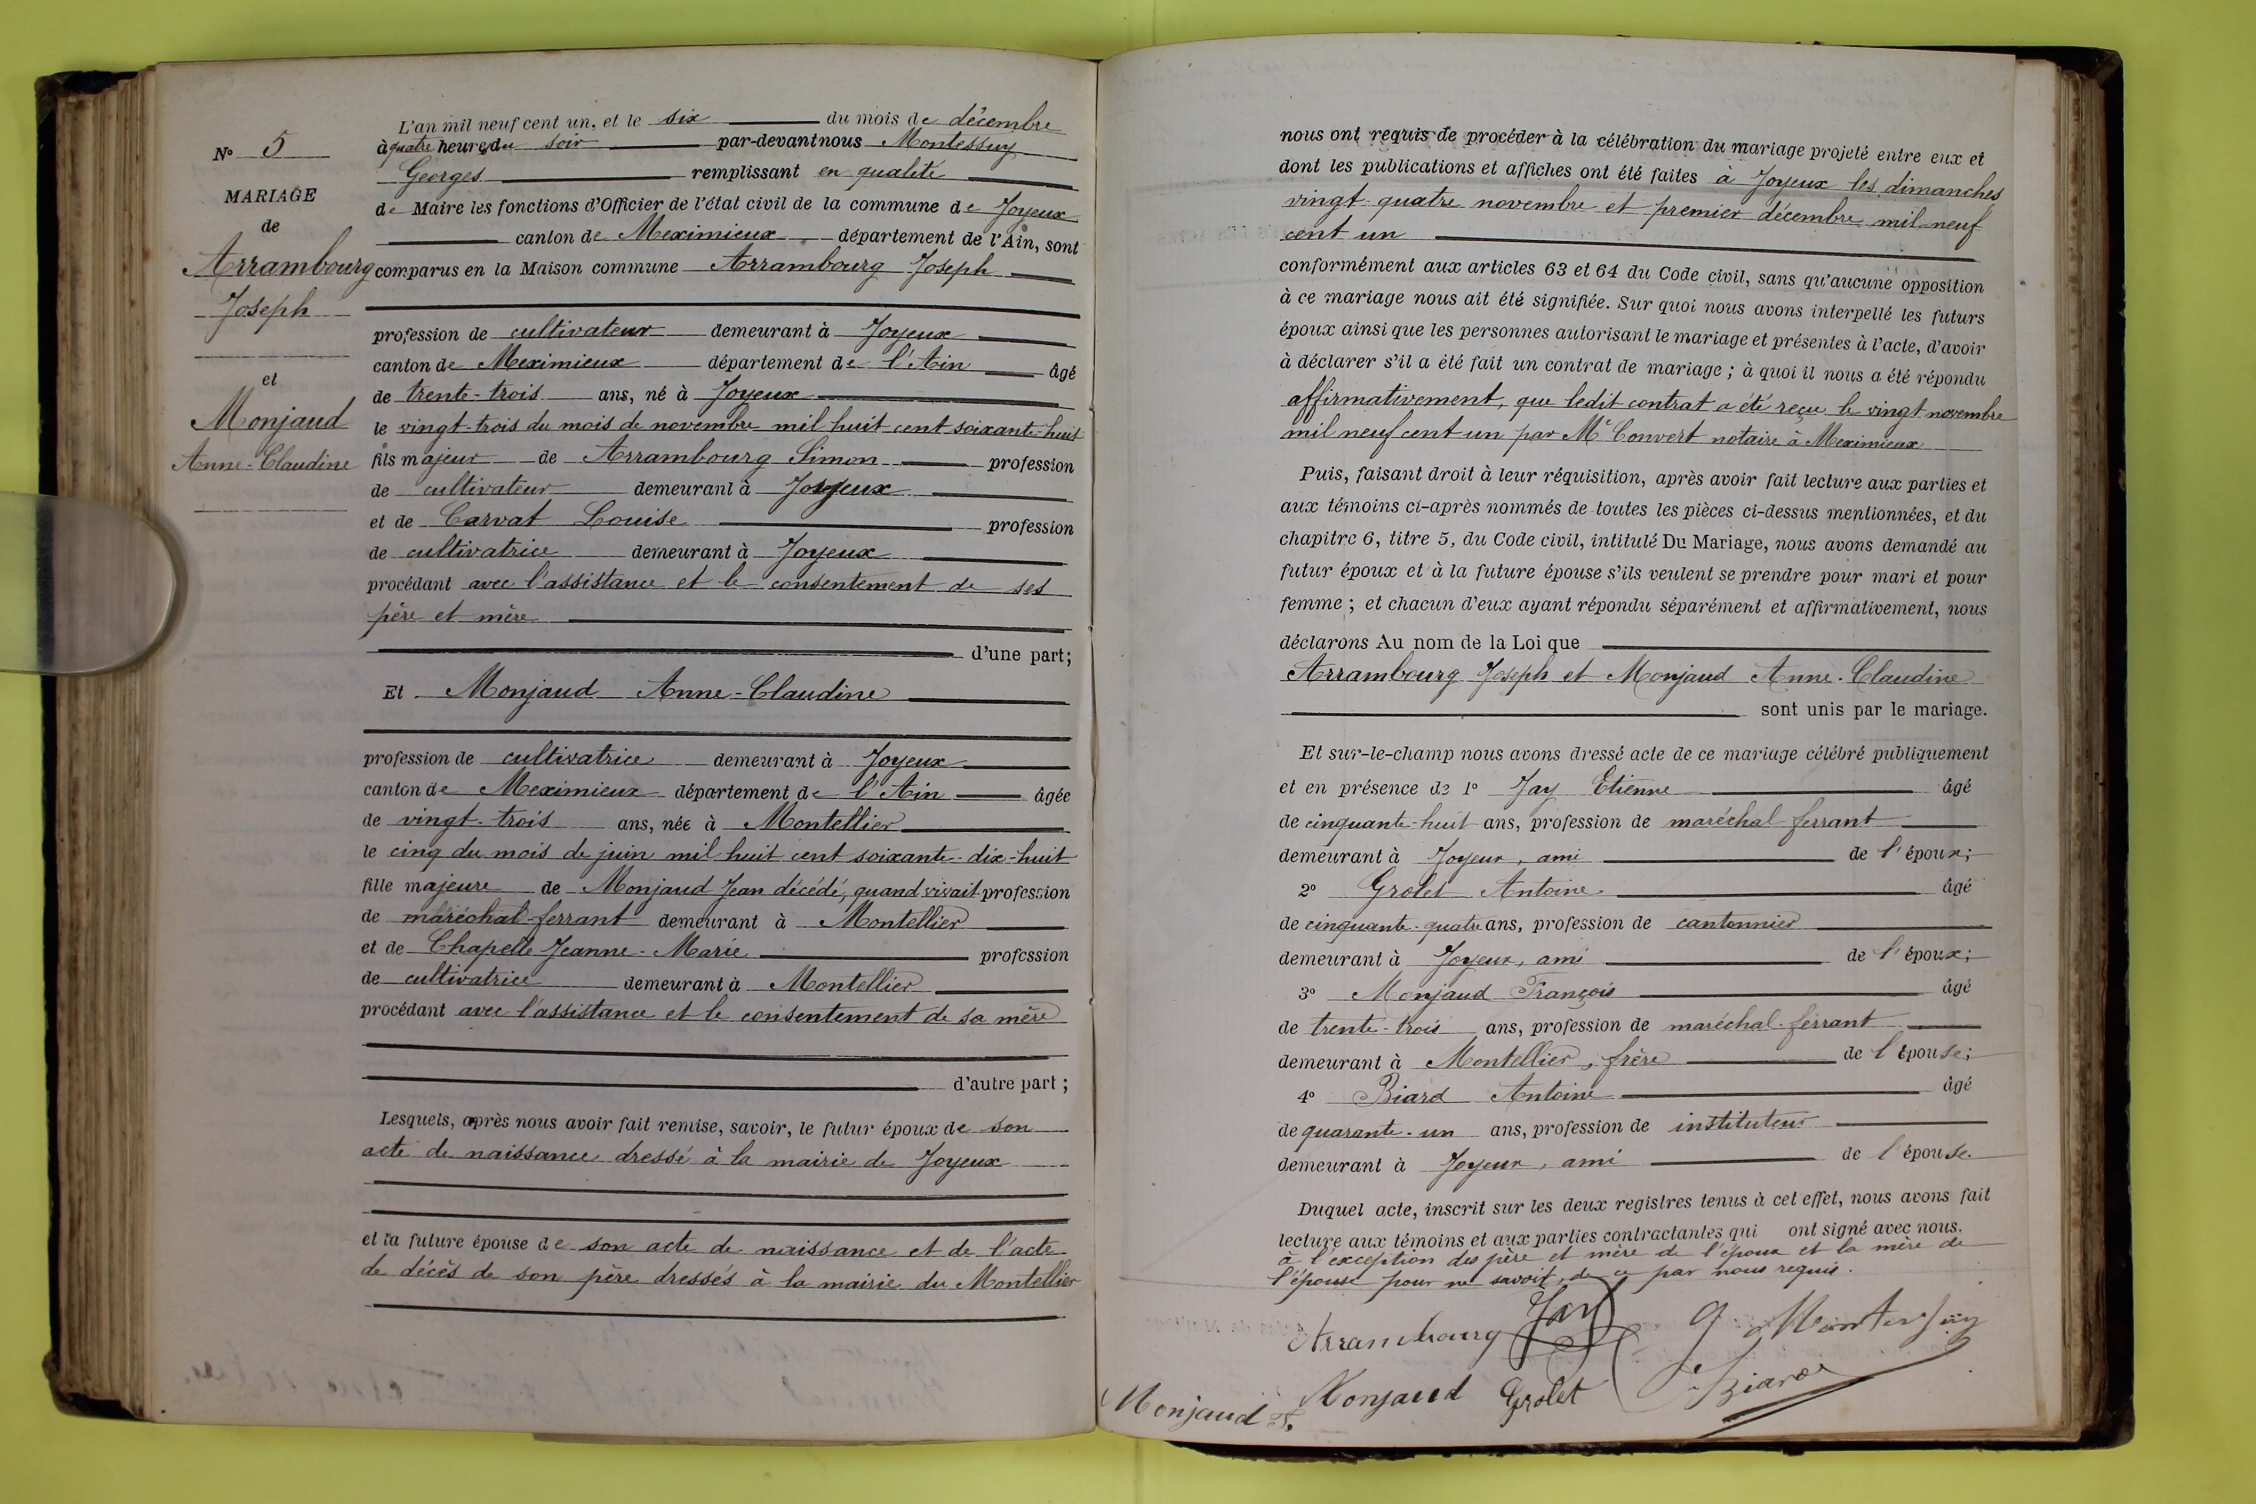 N° 5
MARIAGE
de
Arrambourg
Joseph
et
Monjaud
Anne-Claudine
L'an mil neuf cent un, et le six du mois de décembre
à quatre heures du soir par-devant nous Montessuy
Georges remplissant en qualité
de Maire les fonctions d'Officier de l'état civil de la commune de Joyeux
canton de Meximieux département de l'Ain, sont
comparus en la Maison commune Arrambourg Joseph
profession de cultivateur demeurant à Joyeux
canton de Meximieux département de l'Ain âgé
de trente-trois ans, né à Joyeux
le vingt-trois du mois de novembre mil huit cent soixante-huit
fils majeur de Arrambourg Simon profession
de cultivateur demeurant à Joyeux
et de Carvat Louise profession
de cultivatrice demeurant à Joyeux
procédant avec l'assistance et le consentement de ses
père et mère
d'une part;
Et Monjaud Anne-Claudine
profession de cultivatrice demeurant à Joyeux
canton de Meximieux département de l'Ain âgée
de vingt-trois ans, née à Montellier
le cinq du mois de juin mil huit cent soixante-dix-huit
fille majeure de Monjaud Jean décédé, quand vivait profession
de maréchal-ferrant demeurant à Montellier
et de Chapelle Jeanne-Marie profession
de cultivatrice demeurant à Montellier
procédant avec l'assistance et le consentement de sa mère
d'autre part;
Lesquels, après nous avoir fait remise, savoir, le futur époux de son
acte de naissance dressé à la mairie de Joyeux
et la future épouse de son acte de naissance et de l'acte
de décès de son père dressés à la mairie du Montellier
nous ont requis de procéder à la célébration du mariage projeté entre eux et
dont les publications et affiches ont été faites à Joyeux les dimanches
vingt-quatre novembre et premier décembre mil neuf
cent un
conformément aux articles 63 et 64 du Code civil, sans qu'aucune opposition
à ce mariage nous ait été signifiée. Sur quoi nous avons interpellé les futurs
époux ainsi que les personnes autorisant le mariage et présentes à l'acte, d'avoir
à déclarer s'il a été fait un contrat de mariage; à quoi il nous a été répondu
affirmativement, que ledit contrat a été reçu le vingt novembre
mil neuf cent un par Me Convert notaire à Meximieux
Puis, faisant droit à leur réquisition, après avoir fait lecture aux parties et
aux témoins ci-après nommés de toutes les pièces ci-dessus mentionnées, et du
chapitre 6, titre 5, du Code civil, intitulé Du Mariage, nous avons demandé au
futur époux et à la future épouse s'ils veulent se prendre pour mari et pour
femme; et chacun d'eux ayant répondu séparément et affirmativement, nous
déclarons Au nom de la Loi que
Arrambourg Joseph et Monjaud Anne-Claudine
sont unis par le mariage.
Et sur-le-champ nous avons dressé acte de ce mariage célébré publiquement
et en présence de 1° Jay Etienne âgé
de cinquante-huit ans, profession de maréchal ferrant
demeurant à Joyeux, ami de l'époux;
2° Grolet Antoine âgé
de cinquante-quatre ans, profession de cantonnier
demeurant à Joyeux, ami de l'époux;
3° Monjaud François âgé
de trente-trois ans, profession de maréchal-ferrant
demeurant à Montellier, frère de l'épouse;
4° Biard Antoine âgé
de quarante-un ans, profession de instituteur
demeurant à Joyeux, ami de l'épouse.
Duquel acte, inscrit sur les deux registres tenus à cet effet, nous avons fait
lecture aux témoins et aux parties contractantes qui ont signé avec nous.
à l'exception des père et mère de l'époux et la mère de
l'épouse pour ne savoir, de ce par nous requis.
Arrambourg Jay G Montessuy
Monjaud F. Monjaud Grolet Biard